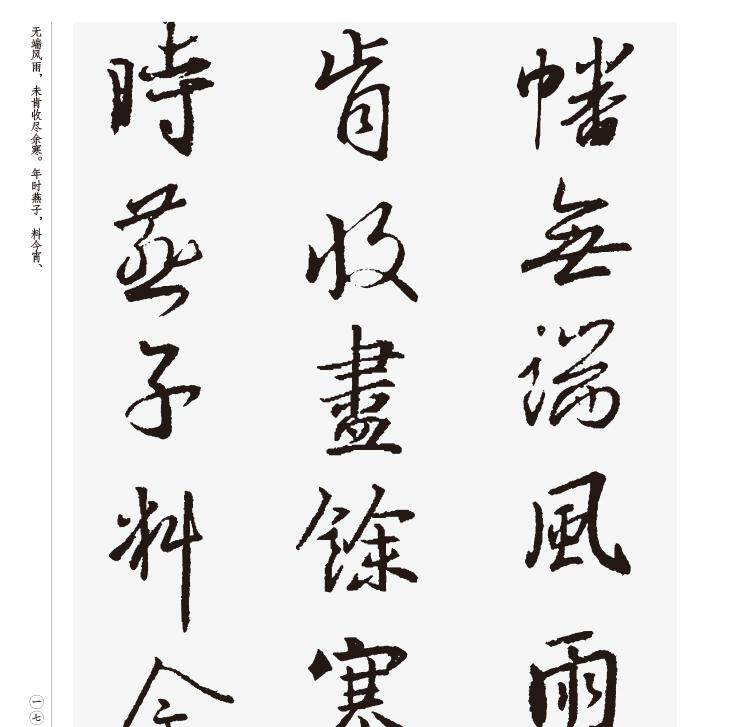 幡無端風雨
肯收盡餘寒
時燕子料今
无端风雨，未肯收尽余寒。年时燕子，料今宵、
一七